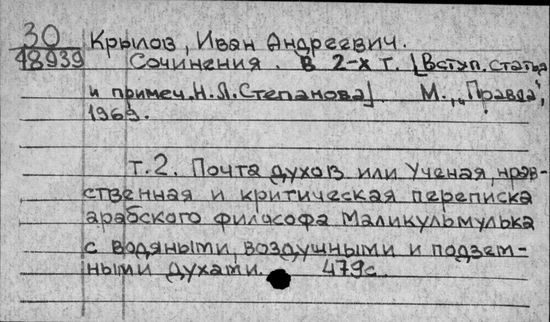 30
18939
Крылов, Иван Андреевич.
Сочинения. В 2-х т. [Вступ. статья
и примеч. Н.Л. Степанова]. М., „Правда",
1969.
т.2. Почта духов или Ученая, нрав-
ственная и критическая переписка
арабского философа Маликульмулька
с водяными, воздушными и подзем-
ными духами. 479с.